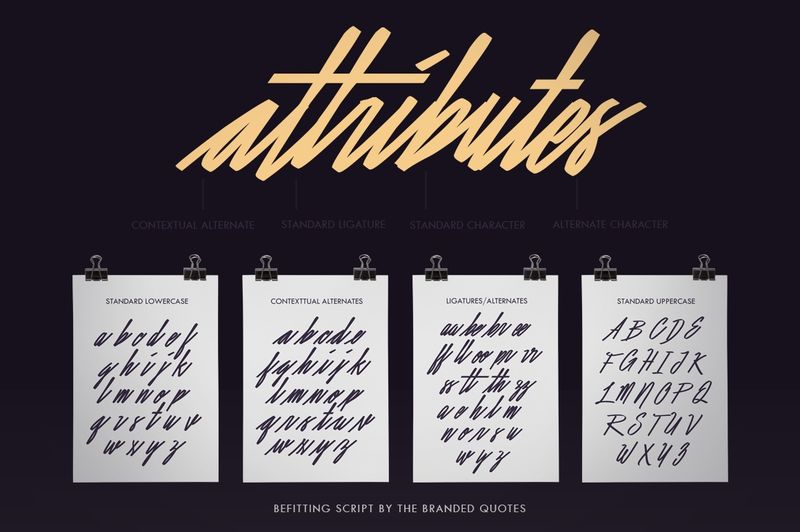 attributes
CONTEXTUAL ALTERNATE STANDARD LIGATURE STANDARD CHARACTER ALTERNATE CHARACTER
STANDARD LOWERCASE
a b c d e f
g h i j k
l m n o p
q r s t u v
w x y z
CONTEXTTUAL ALTERNATES
a b c d e
f g h i j k
l m n o p
q r s t u v
w x y z
LIGATURES/ALTERNATES
ff ll oo pr rr
ss tt th zy
a e h l m
n o r s u
w y z
STANDARD UPPERCASE
A B C D E
F G H I J K
L M N O P Q
R S T U V
W X Y Z
BEFITTING SCRIPT BY THE BRANDED QUOTES